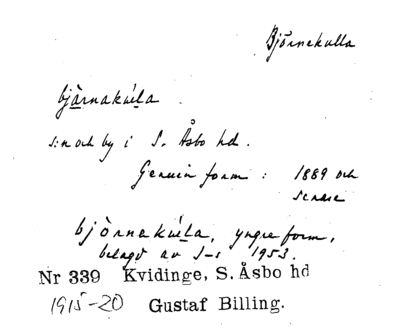 Björnekulla
bjàrnakúla.
s:n och by i S. Åsbo hd.
Genuin form: 1889 och
senare
bjòrnekúla, yngre form,
belagd av S-s 1953.
Nr 339 Kvidinge, S. Åsbo hd
1915-20 Gustaf Billing.